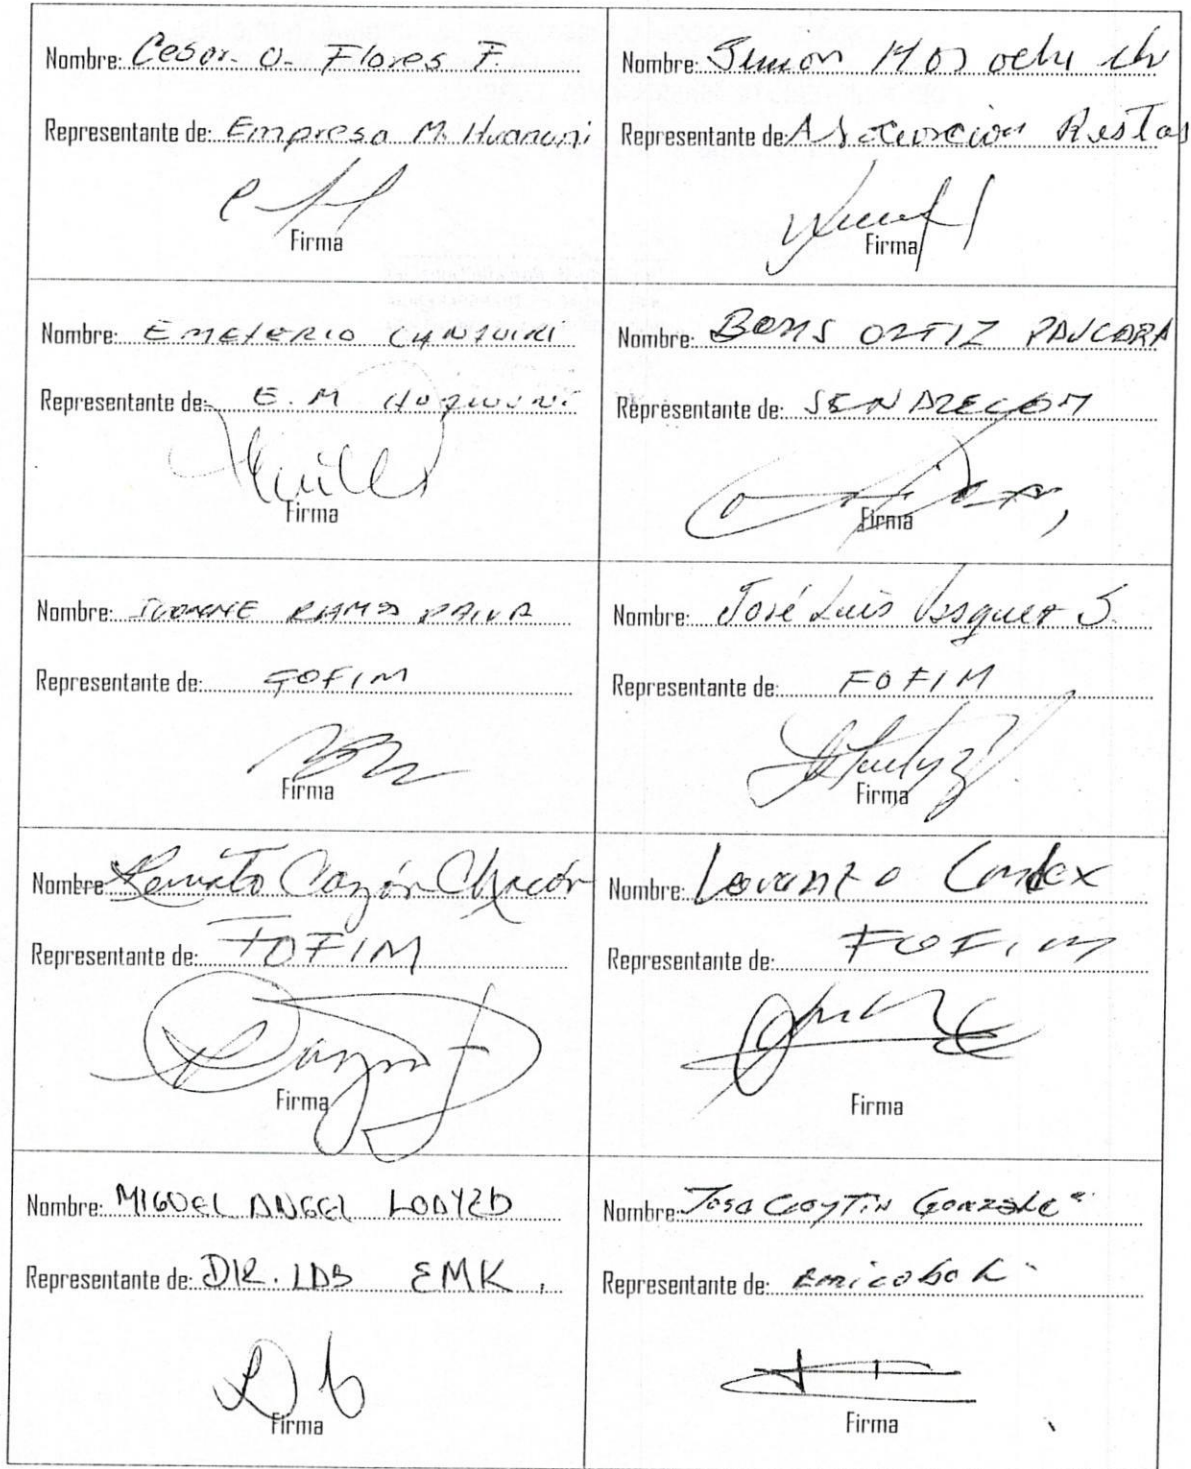 Nombre: Cesar. O. Flores F.
Representante de: Empresa M. Huanuni
Firma
Nombre: Simon
Representante de: Asociacion Ristas
Firma
Nombre: EMETERIO
Representante de: E. M Huanuni
Firma
Nombre: BORIS ORTIZ PAUCARA
Representante de: SENARECOM
Firma
Nombre: IVONNE RAMOS PAIVA
Representante de: FOFIM
Firma
Nombre: José Luis Vasquez S.
Representante de: FOFIM
Firma
Nombre: Renato Cazón Chacón
Representante de: FOFIM
Firma
Nombre: Lorenzo
Representante de: FOFIM
Firma
Nombre: MIGUEL ANGEL LOAYZA
Representante de: DIR. LAB EMK.
Firma
Nombre: Gonzale
Representante de:
Firma